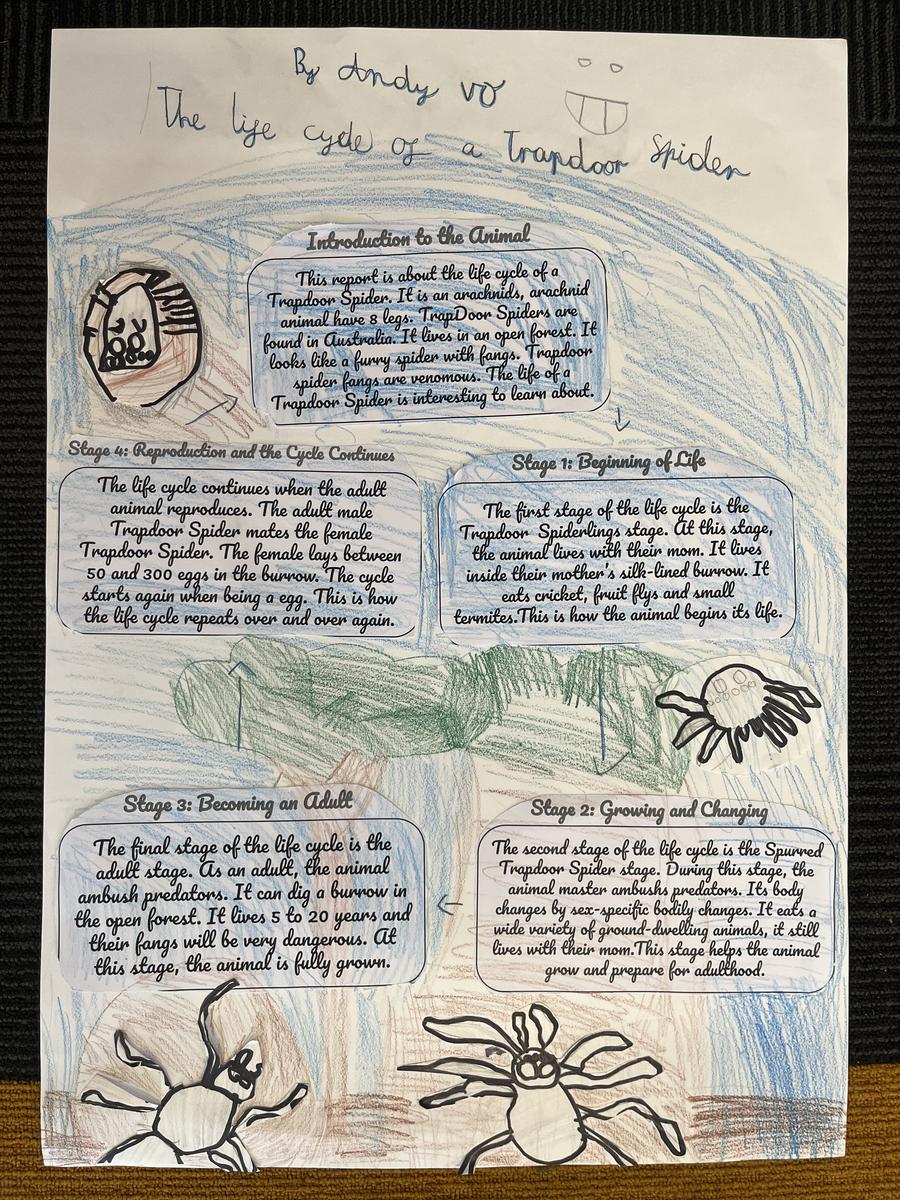 By Andy Vo
The life cycle of a Trapdoor Spider
Introduction to the Animal
This report is about the life cycle of a
Trapdoor Spider. It is an arachnids, arachnid
animal have 8 legs. TrapDoor Spiders are
found in Australia. It lives in an open forest. It
looks like a furry spider with fangs. Trapdoor
spider fangs are venomous. The life of a
Trapdoor Spider is interesting to learn about.
Stage 1: Beginning of Life
The first stage of the life cycle is the
Trapdoor Spiderlings stage. At this stage,
the animal lives with their mom. It lives
inside their mother's silk-lined burrow. It
eats cricket, fruit flys and small
termites.This is how the animal begins its life.
Stage 2: Growing and Changing
The second stage of the life cycle is the Spurred
Trapdoor Spider stage. During this stage, the
animal master ambushs predators. Its body
changes by sex-specific bodily changes. It eats a
wide variety of ground-dwelling animals, it still
lives with their mom.This stage helps the animal
grow and prepare for adulthood.
Stage 3: Becoming an Adult
The final stage of the life cycle is the
adult stage. As an adult, the animal
ambush predators. It can dig a burrow in
the open forest. It lives 5 to 20 years and
their fangs will be very dangerous. At
this stage, the animal is fully grown.
Stage 4: Reproduction and the Cycle Continues
The life cycle continues when the adult
animal reproduces. The adult male
Trapdoor Spider mates the female
Trapdoor Spider. The female lays between
50 and 300 eggs in the burrow. The cycle
starts again when being a egg. This is how
the life cycle repeats over and over again.